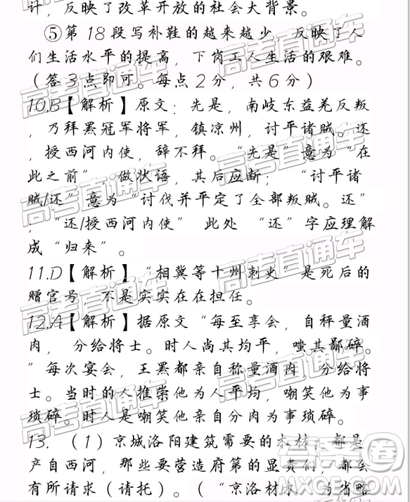 计，反映了改革开放的社会大背景。
⑤第18段写补鞋的越来越少，反映了人
们生活水平的提高，下岗工人生活的艰难。
（答3点即可。每点2分，共6分）
10.B【解析】原文：先是，南岐东益氐羌反叛
，乃拜罴冠军将军，镇凉州，讨平诸贼。还
，授西河内史，辞不拜。“先是”意为“在
此之前”，做状语，其后应断；“讨平诸
贼/还”意为“讨伐并平定了全部叛贼。还”
，“还/授西河内史”此处“还”字应理解
成“归来”。
11.D【解析】，“相冀等十州刺史”是死后的
赠官号，不是实实在在担任。
12.A【解析】据原文“每至享会，自秤量酒
肉，分给将士。时人尚其均平，嗤其鄙碎。
”每次宴会，王罴都亲自称量酒肉，分给将
士。当时的人推崇他为人平均，嘲笑他为事
琐碎。时人是嘲笑他亲自分肉为事琐碎。
13.（1）京城洛阳建筑需要的木材，都是
产自西河，那些要营造府第的显贵们，都会
有所请求（请托）。（“京洛材木”
高考直通车
高考直通车
高考直通车
高考直通车